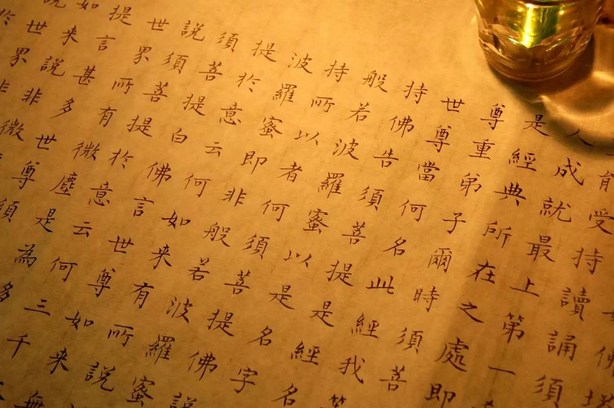 如佛
能受持讀誦須
人成就最上第一
是經典所在之處即
尊重弟子爾時須菩
世尊當何名此經我等
持佛告須菩提是經名
般若波羅蜜以是名字
持所以者何須菩提佛
波羅蜜即非般若波羅蜜
提於意云何如來有所說
須菩提白佛言世尊如來無
說須菩提於意云何三千
世界所有微塵是為多
提言甚多世尊須
如來說非微
世界非
於